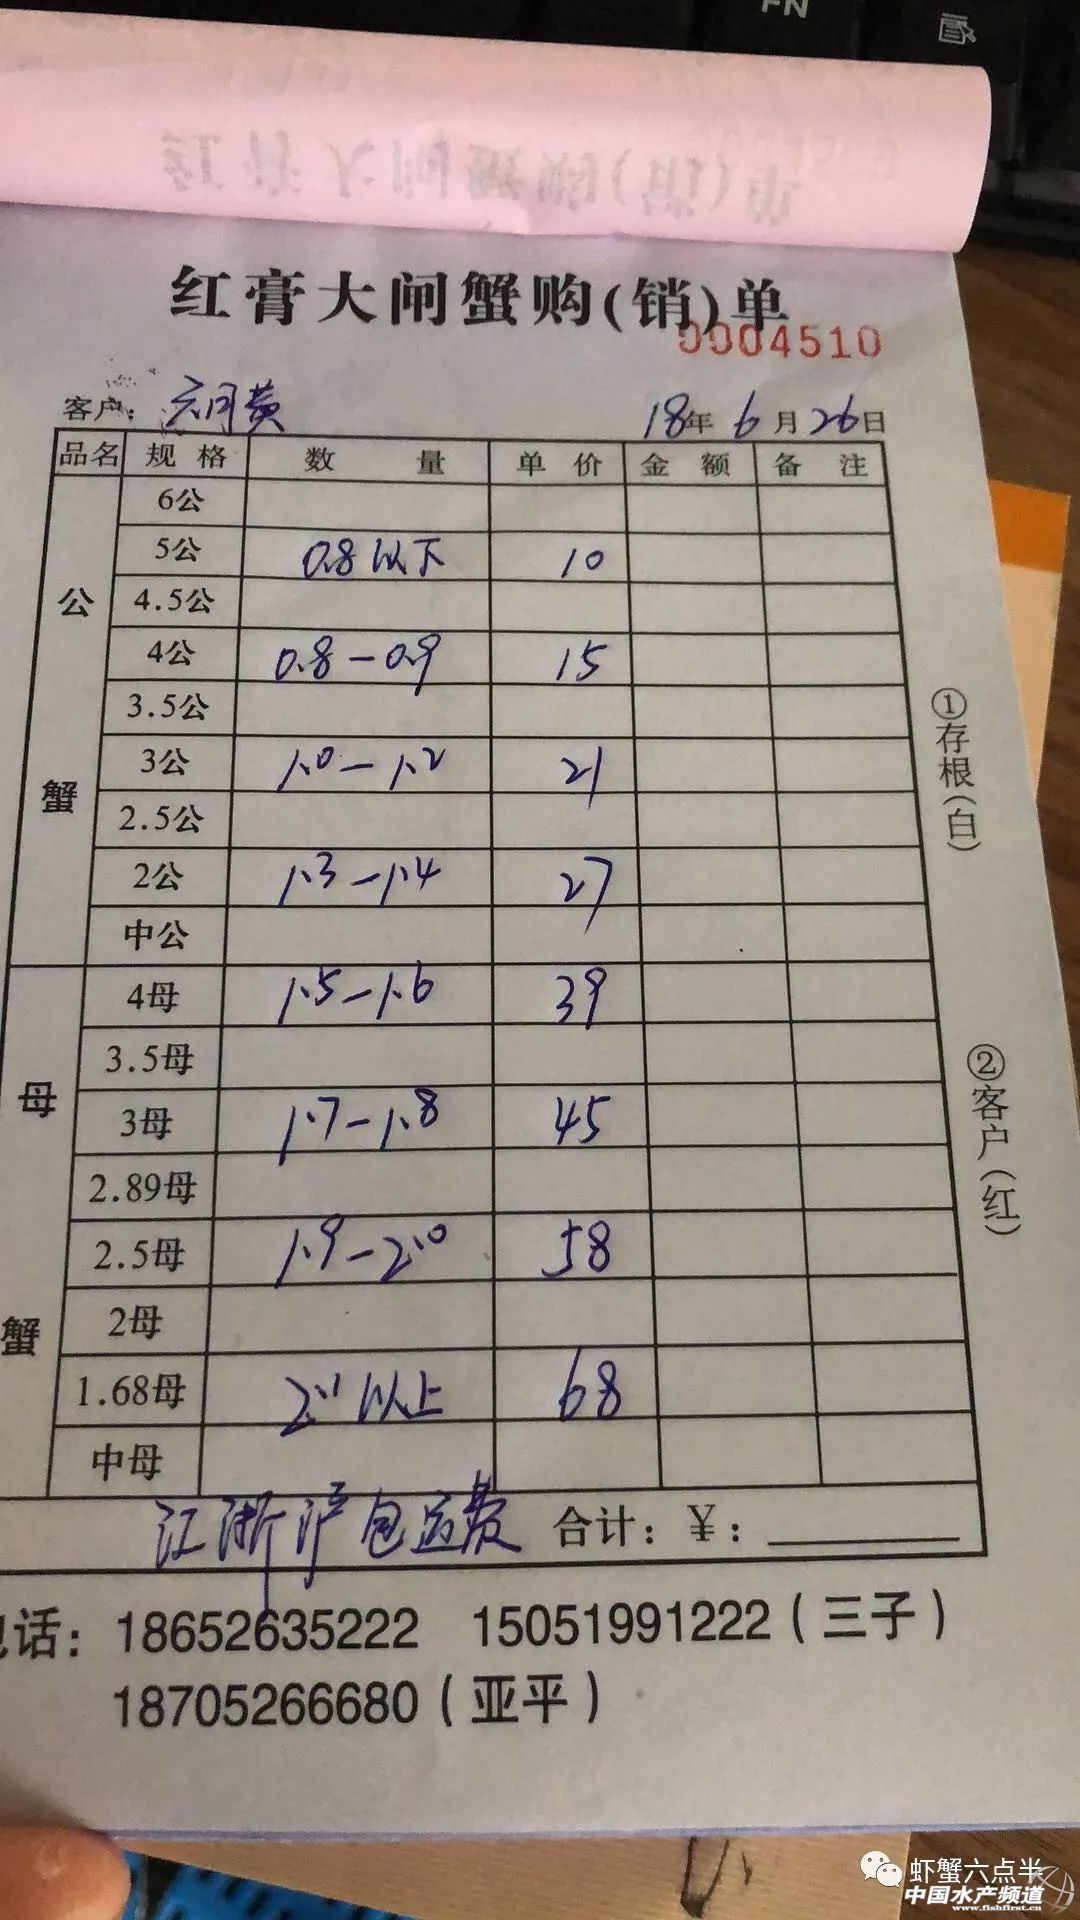 FN
红膏大闸蟹购(销)单
0004510
客户: 六月黄 18年 6月 26日
品名 规格 数量 单价 金额 备注
公蟹
6公
5公 0.8以下 10
4.5公
4公 0.8-0.9 15
3.5公
3公 1.0-1.2 21
2.5公
2公 1.3-1.4 27
中公
母蟹
4母 1.5-1.6 39
3.5母
3母 1.7-1.8 45
2.89母
2.5母 1.9-2.0 58
2母
1.68母 2.1以上 68
中母
江浙沪包运费 合计: ¥:
①存根(白)
②客户(红)
电话: 18652635222 15051991222(三子)
18705266680(亚平)
虾蟹六点半
中国水产频道
www.fishfirst.cn